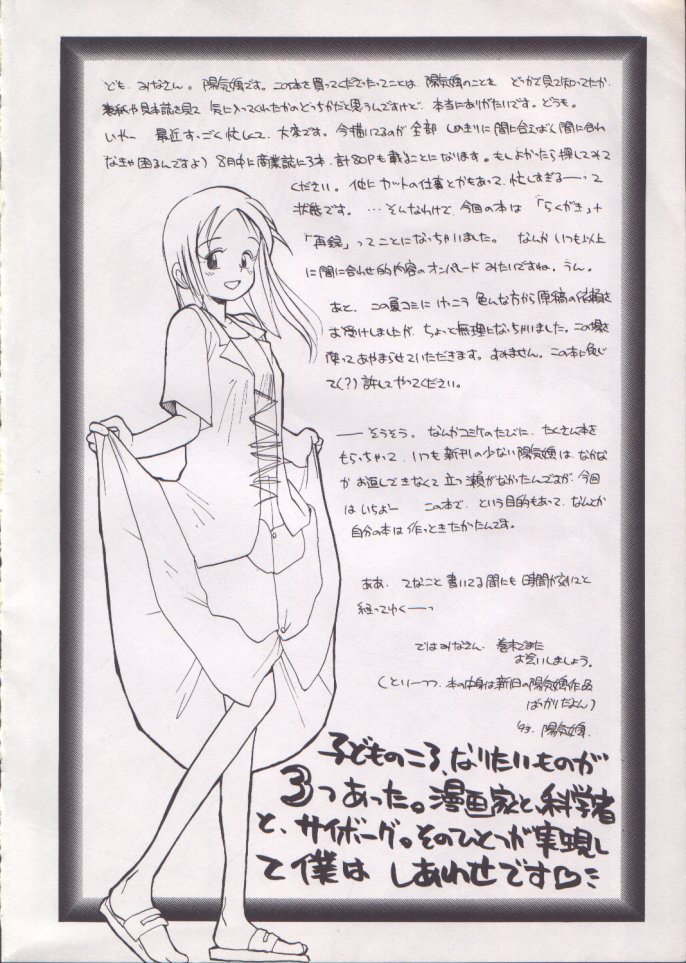 ども、みなさん。陽気婢です。この本を買ってくださったってことは、陽気婢のことを どっかで見て知ってたか、
表紙や見本誌を見て 気に入ってくれたかのどっちかだと思うんですけど、本当にありがたいです。どうも。
いやー 最近すっごく忙しくて、大変です。今描いてるのが全部 しめきりに間に合えばく間に合わ
なきゃ困るんですよ)8月中に商業誌に3本、計80Pも載ることになります。もしよかったら探してみて
ください。他にカットの仕事とかもあって、忙しすぎる──って
状態です。…そんなわけで、今回の本は「らくがき」+
「再録」ってことになっちゃいました。なんか いつも以上
に間に合わせ的内容のオンパレードみたいですね。うん。
あと、この夏コミに けっこう 色んな方から原稿の依頼を
お受けしましたが、ちょっと無理になっちゃいました。この場を
借りてあやまらせていただきます。すみません。この本に免じ
て(?)許してやってください。
──そうそう。なんかコミケのたびに、たくさん本を
もらっちゃって、いつも新刊の少ない陽気婢は、なかな
かお返しできなくて立つ瀬がなかったんですが、今回
はいちおー この本で、という目的もあって、なんとか
自分の本は作っときたかったんです。
ああ、てなこと書いてる間にも時間が刻々と
経ってゆく──っ
ではみなさん、巻末でまた
お会いしましょう。
(といーつつ、本の中身は新旧の陽気婢作品
ばっかりだよん)
'93. 陽気婢.
子どものころ、なりたいものが
3つあった。漫画家と、科学者
と、サイボーグ。そのひとつが実現し
て僕は しあわせです♡